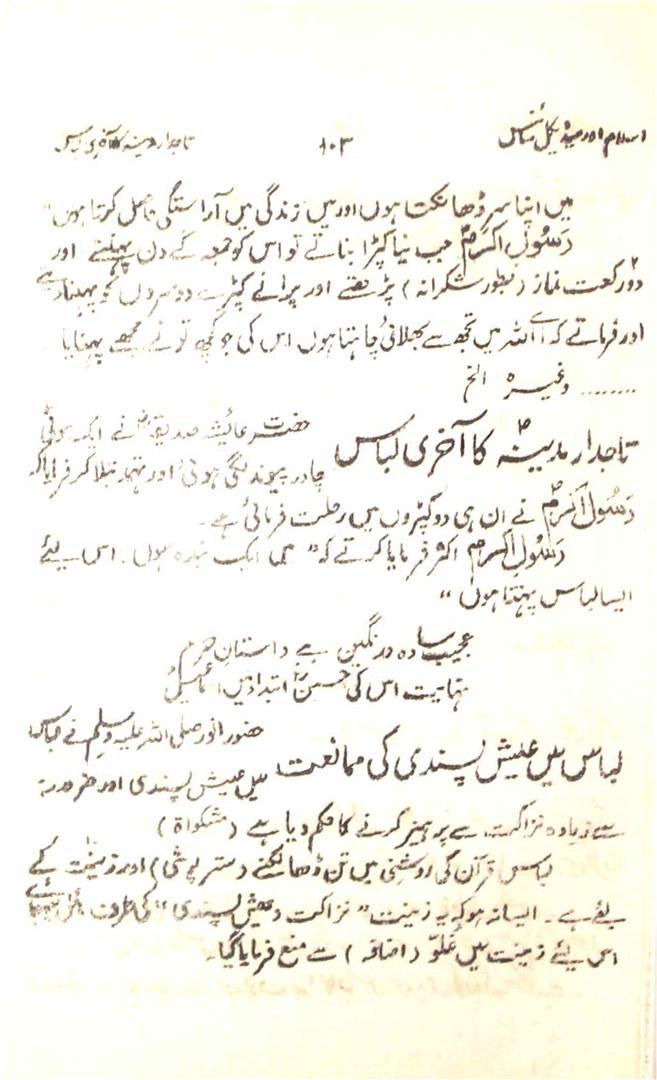 اسلام اور میڈیکل سائنس ۱۰۳ تاجدار مدینہ کا آخری لباس
میں اپنا سر ڈھانکتا ہوں اور میں زندگی میں آراستگی حاصل کرتا ہوں"
رَسُولِ اکرمؐ جب نیا کپڑا بناتے تو اس کو جمعہ کے دن پہنتے اور
۲ دو رکعت نماز (بطور شکرانہ) پڑھتے اور پرانے کپڑے دوسروں کو پہنادیتے
اور فرماتے کہ "اے اللہ میں تجھ سے بھلائی چاہتا ہوں اس کی جو کچھ تو نے مجھے پہنایا
........ وغیرہ الخ
تاجدار مدینہؐ کا آخری لباس حضرت عائشہ صدیقہؓ نے ایک موٹی
چادر پیوند لگی ہوئی اور تہمد بتلا کر فرمایا کہ
رَسُولِ اکرمؐ نے ان ہی دو کپڑوں میں رحلت فرمائی ہے۔
رَسُولِ اکرمؐ اکثر فرمایا کرتے کہ "میں ایک بندہ ہوں۔ اسی لئے
ایسا لباس پہنتا ہوں"
عجیب سادہ و رنگین ہے داستانِ حرم
نہایت اس کی حسینؓ ابتدا ہیں اسماعیلؑ
لباس میں عیش پسندی کی ممانعت حضور انور صلی اللہ علیہ وسلم نے لباس
میں عیش پسندی اور ضرورت
سے زیادہ نزاکت سے پرہیز کرنے کا حکم دیا ہے (مشکواۃ)
لباس قرآن کی روشنی میں تن ڈھانکنے (ستر پوشی) اور زینت کے
لئے ہے۔ ایسا نہ ہو کہ یہ زینت "نزاکت و عیش پسندی" کی طرف
اس لئے زینت میں غلوّ (اضافہ) سے منع فرمایا گیا۔